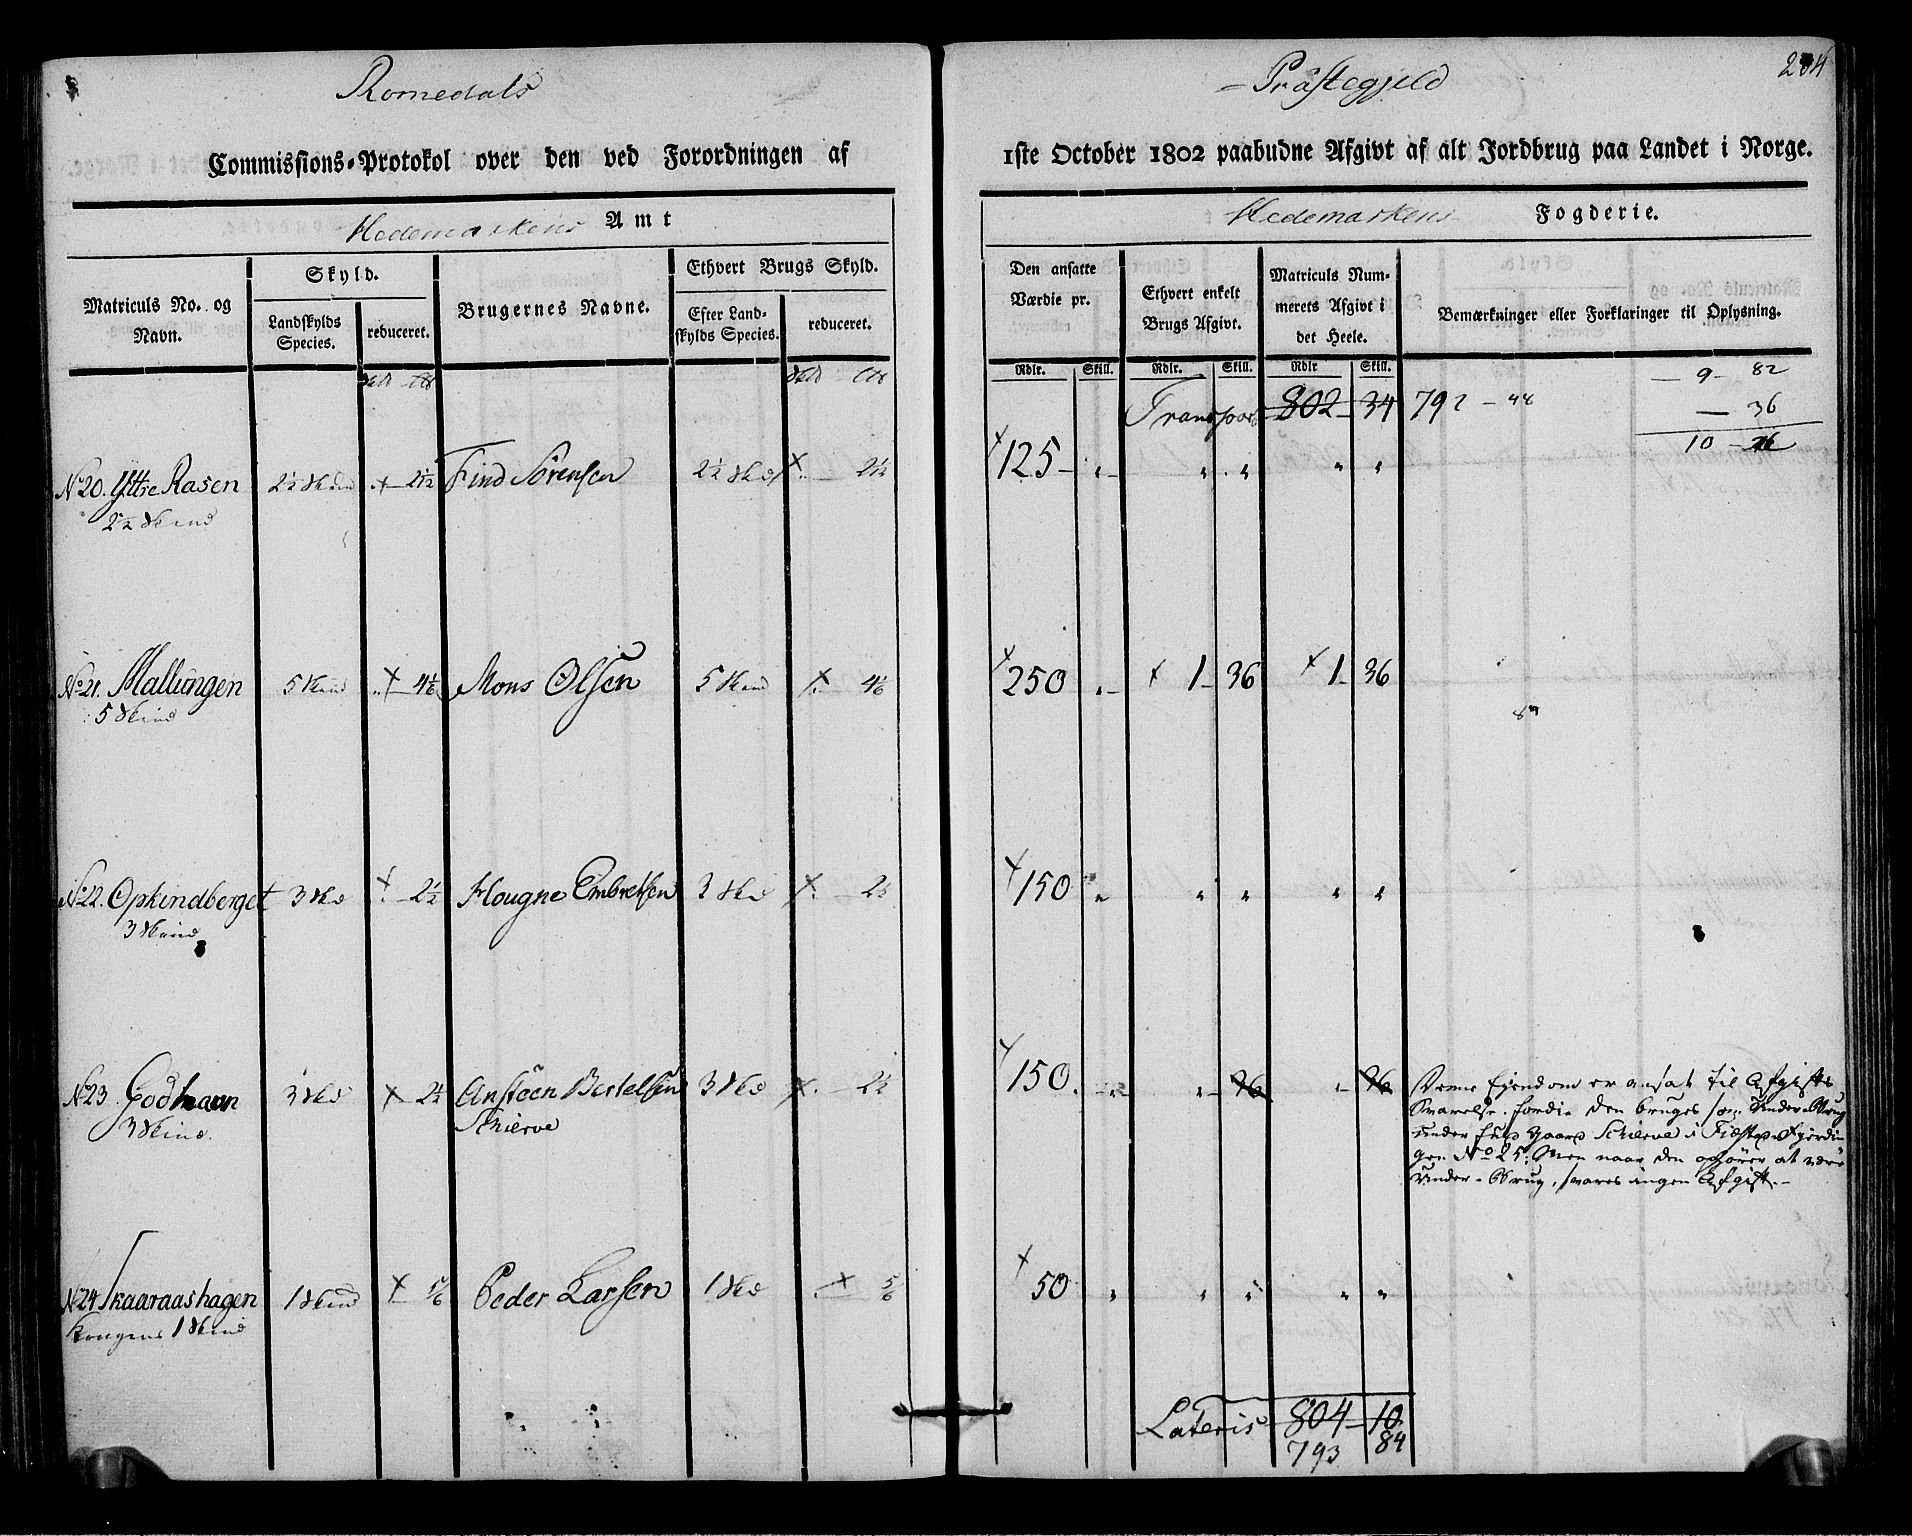 Romedals
Commissions-Protokol over den ved Forordningen af
Hedemarkens Amt
Matriculs No. og Navn.
Skyld.
Landskylds Species.
reduceret.
Brugernes Navne.
Ethvert Brugs Skyld.
Efter Landskylds Species.
reduceret.
No 20. Yttre Rasen 2½ Skind 2½ Find Sörensen 2½ Skd 2½
2½ Skind
No 21. Mallungen 5 Skind 4⅙ Mons Olsen 5 Skind 4⅙
5 Skind
No 22. Opkindberget 3 Skd 2½ Hougne Embretsen 3 Skd 2½
3 Skind
No 23 Godthaan 3 Skd 2½ Ansteen Bertelsen 3 Skd 2½
3 Skind. Schierve
No 24 Skaaraashagen 1 Skind ⅚ Peder Larsen 1 Skd ⅚
Kongens 1 Skind
Præstegjeld
204
1ste October 1802 paabudne Afgivt af alt Jordbrug paa Landet i Norge.
Hedemarkens Fogderie.
Den ansatte Værdie pr.
Ethvert enkelt Brugs Afgivt.
Matriculs Nummerets Afgivt i det Heele.
Bemærkninger eller Forklaringer til Oplysning.
Rdlr. Skill. Rdlr. Skill. Rdlr Skill.
9 - 82
Transport 802 - 34 792 - 44
- 36
10 -
125 - „ „ „ „ „
250 „ 1 - 36 1 - 36
150 „ „ „ „ „
150. „ „ - 36 „ - 36
Denne Eyendom er ansat til Afgifts
Svarelse. fordi den bruges som Under-Brug
under hans Gaard Schierve i Fierdin
gen No 25. Men naar den ophører at være
Under-Brug, svares ingen Afgift.-
50 „ „ „ „ „
Lateris 804 - 10
793 84